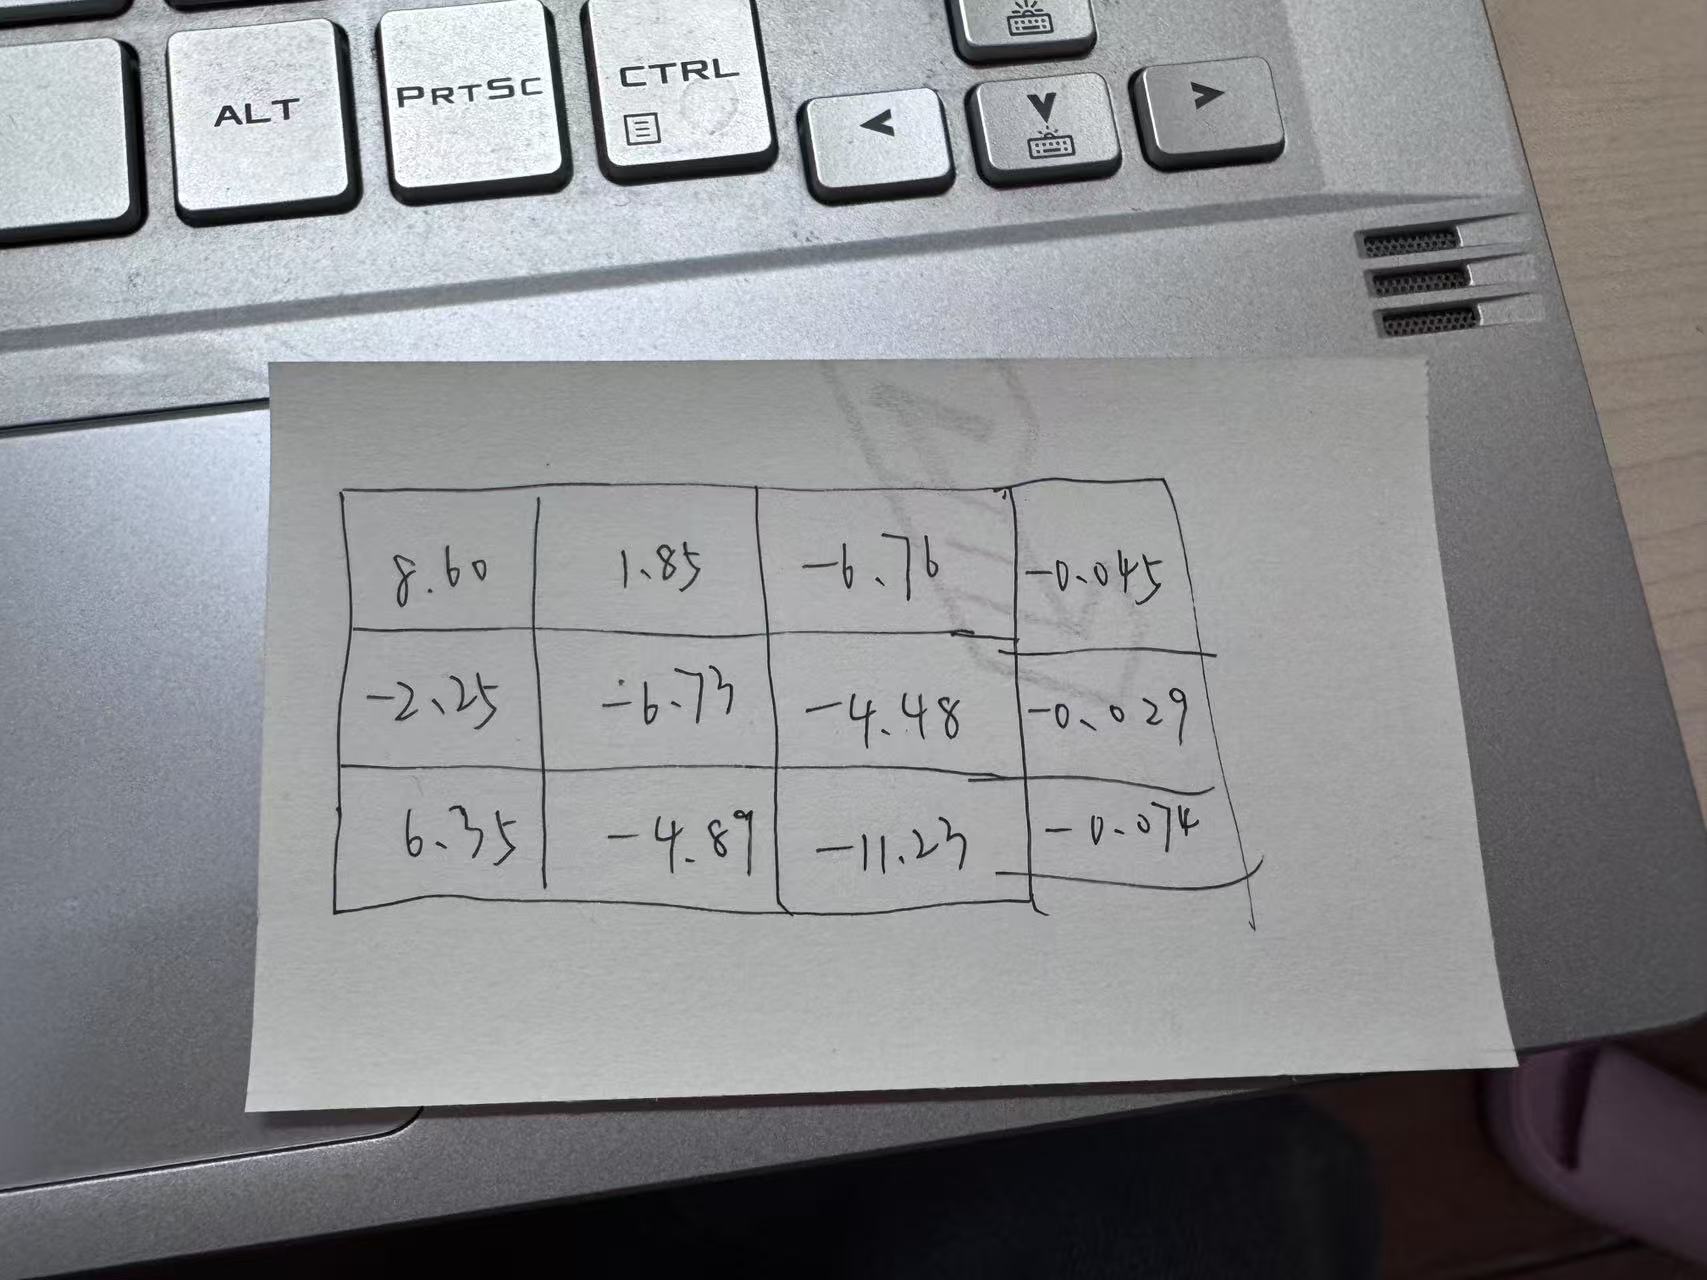 ALT PRTSC CTRL
8.60 1.85 -6.76 -0.045
-2.25 -6.73 -4.48 -0.029
6.35 -4.89 -11.23 -0.074